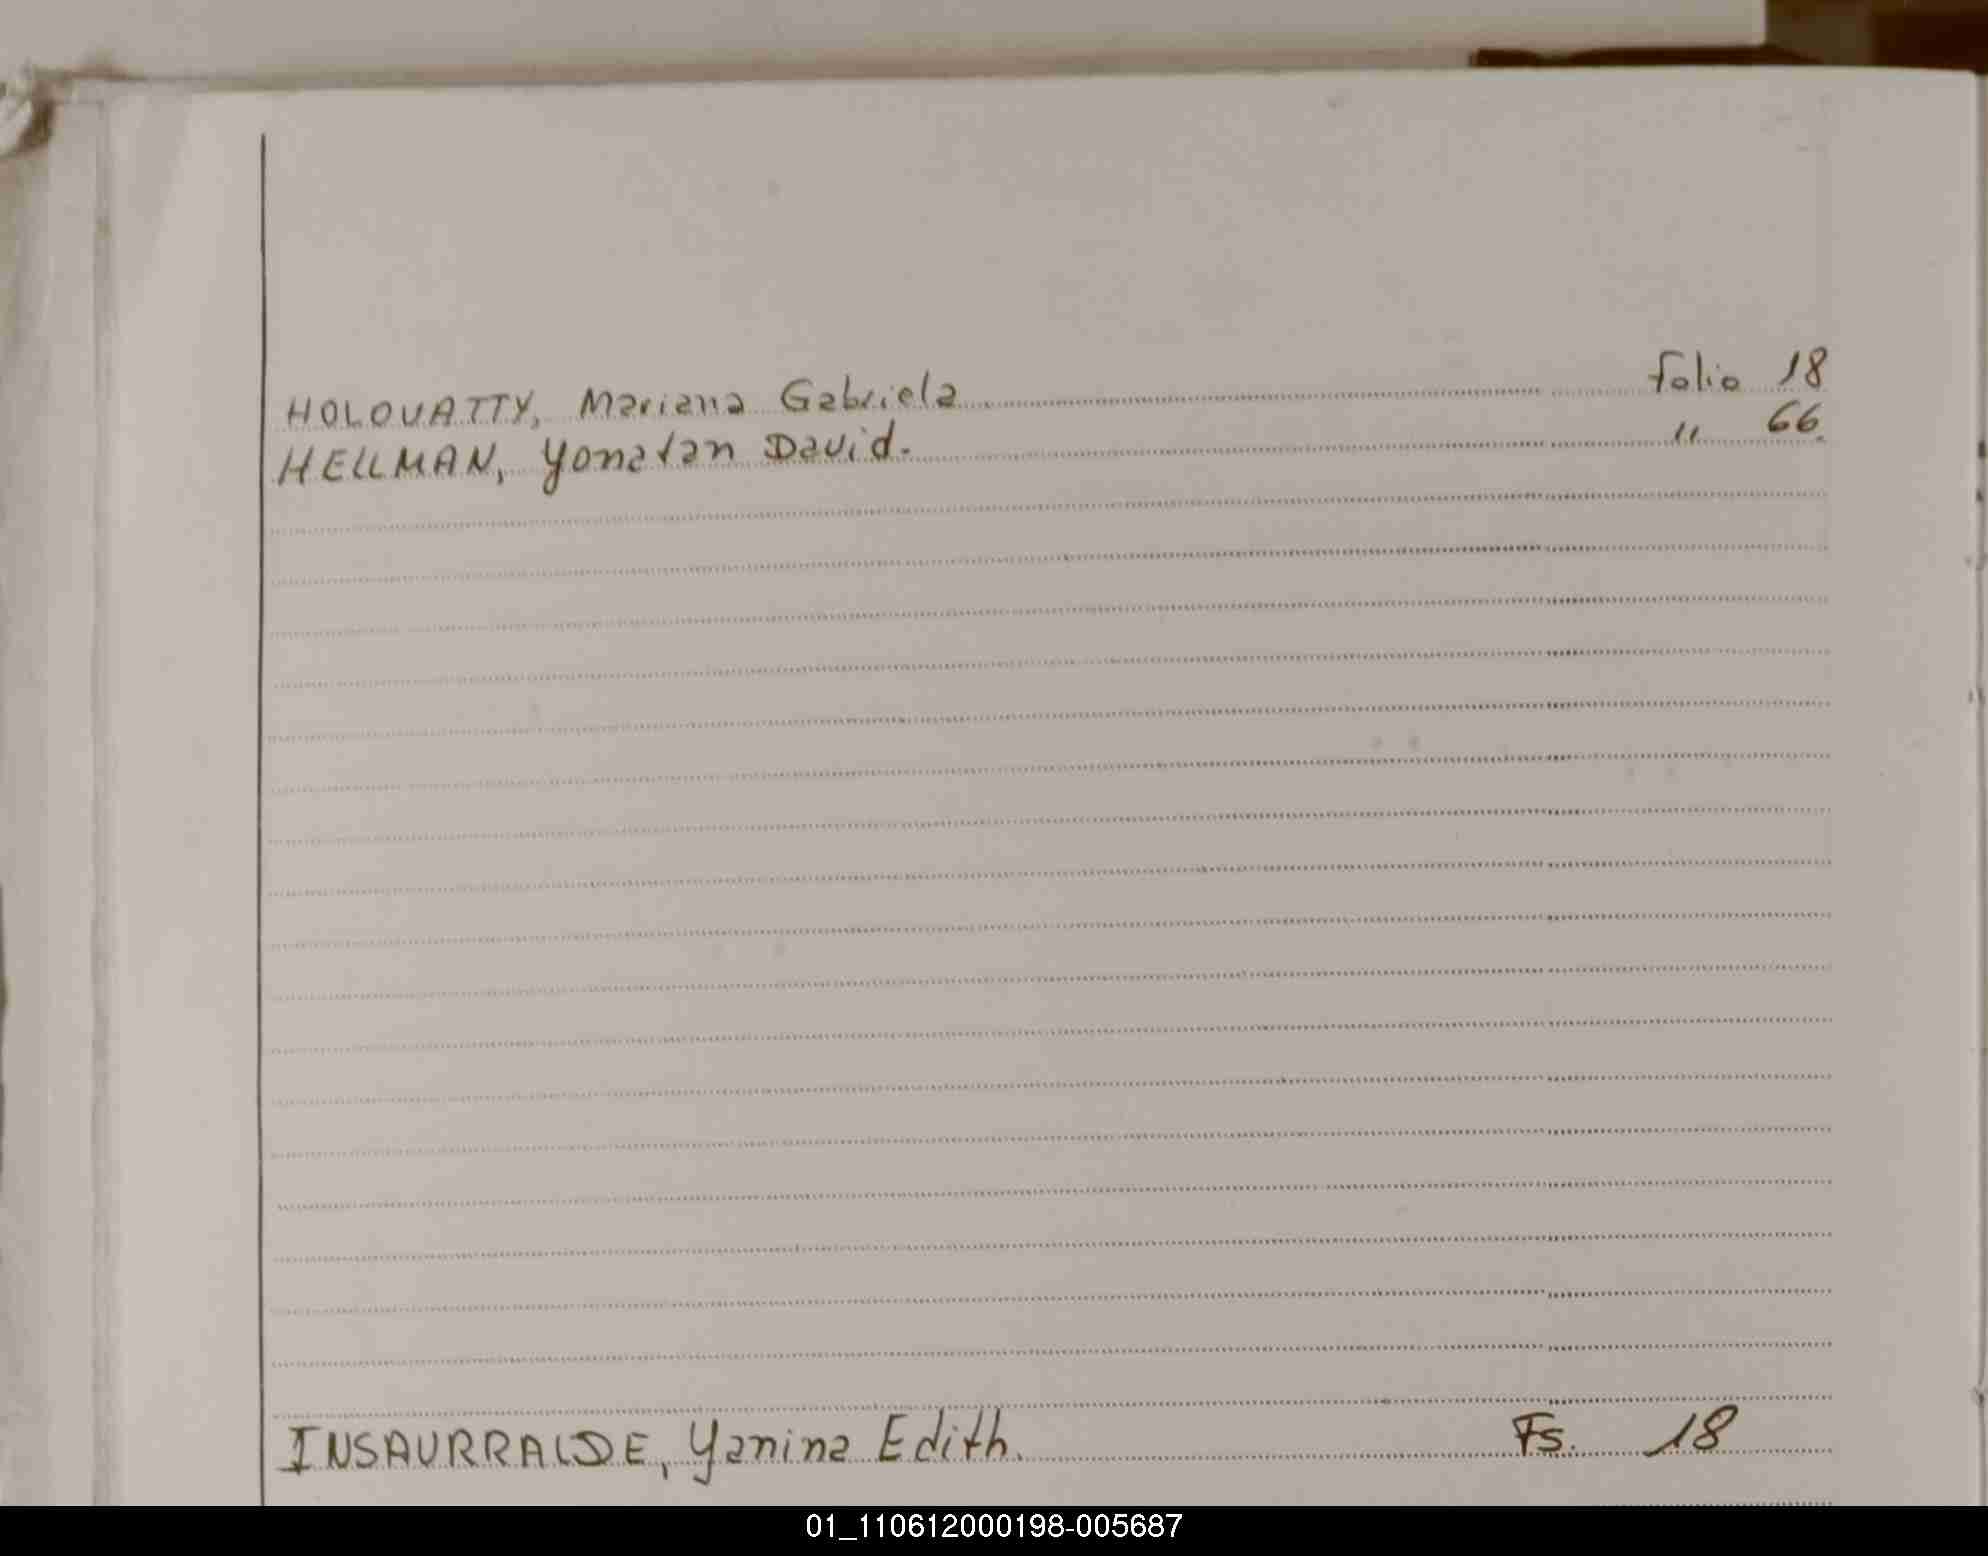 HOLOVATTY, Mariana Gabriela folio 18
HELLMAN, Yonatan David. " 66.
INSAURRALDE, Yanina Edith. Fs. 18
01_110612000198-005687